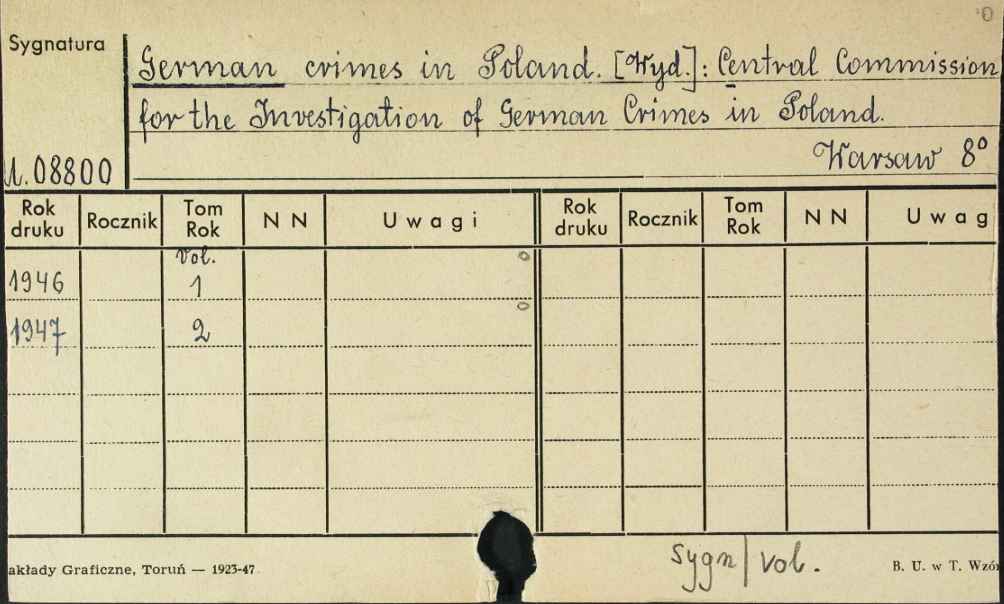 Sygnatura
German crimes in Poland. [Wyd.]: Central Commission
for the Investigation of German Crimes in Poland.
Warsaw 8°
08800
Rok druku Rocznik Tom Rok N N Uwagi Rok druku Rocznik Tom Rok N N Uwag
Vol.
1946 1
1947 2
sygn/vol.
akłady Graficzne, Toruń — 1923-47 B. U. w T. Wzó